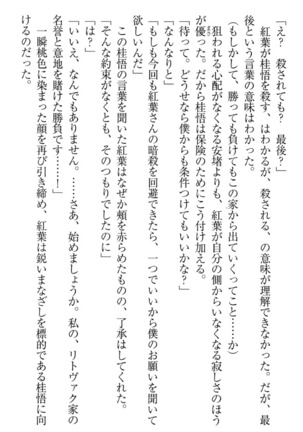 「え？　殺されても？　最後？」
　紅葉が桂悟を殺す、はわかるが、殺される、の意味が理解できなかった。だが、最
後という言葉の意味はわかった。
（もしかして、勝っても負けてもこの家から出ていくってこと……か）
　狙われる心配がなくなる安堵よりも、紅葉が自分の側からいなくなる寂しさのほう
が優った。だから桂悟は保険のためにこう付け加える。
「待って。どうせなら僕からも条件つけてもいいかな？」
「なんなりと」
「もしも今回も紅葉さんの暗殺を回避できたら、一つでいいから僕のお願いを聞いて
欲しいんだ」
　この桂悟の言葉を聞いた紅葉はなぜか頰を赤らめたものの、了承はしてくれた。
「そんな約束がなくとも、そのつもりでしたのに」
「は？」
「いいえ、なんでもありません。……さあ、始めましょうか。私の、リトヴァク家の
名誉と意地を賭けた勝負です……！」
　一瞬桃色に染まった顔を再び引き締め、紅葉は鋭いまなざしを標的である桂悟に向
けるのだった。